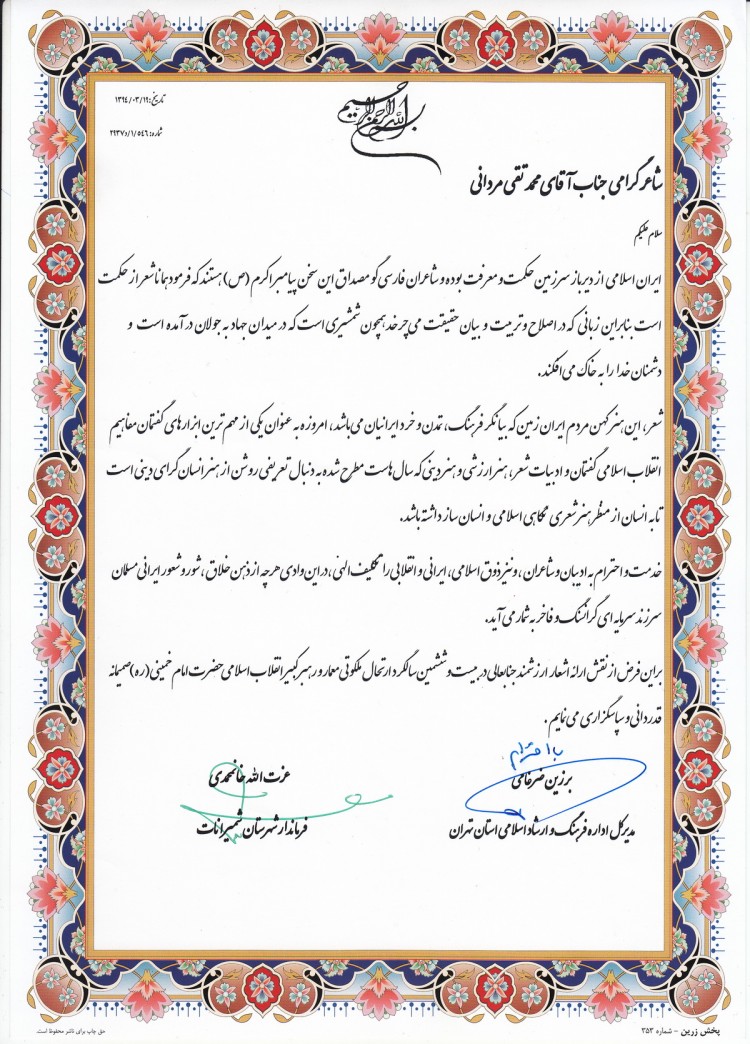 بسم الله الرحمن الرحیم
تاریخ: ۱۳۹۴/۰۳/۱۹
شماره: ۲۹۳۷د/۱/۵۴۶
شاعر گرامی جناب آقای محمد تقی مردانی
سلام علیکم
ایران اسلامی از دیرباز سرزمین حکمت و معرفت بوده و شاعران فارسی گو مصداق این سخن پیامبر اکرم (ص) هستند که فرمود همانا شعر از حکمت
است بنابراین زبانی که در اصلاح و تربیت و بیان حقیقت می چرخد همچون شمشیری است که در میدان جهاد به جولان در آمده است و
دشمنان خدا را به خاک می افکند.
شعر، این هنر کهن مردم ایران زمین که بیانگر فرهنگ، تمدن و خرد ایرانیان می باشد، امروزه به عنوان یکی از مهم ترین ابزارهای گفتمان مفاهیم
انقلاب اسلامی گفتمان و ادبیات شعر، هنر ارزشی و هنر دینی که سال هاست مطرح شده به دنبال تعریفی روشن از هنر انسان گرای دینی است
تا به انسان از منظر هنر شعری نگاهی اسلامی و انسان ساز داشته باشد.
خدمت و احترام به ادیبان و شاعران، ونیز ذوق اسلامی، ایرانی و انقلابی را تکلیف الهی، در این وادی هر چه از ذهن خلاق، شور و شعور ایرانی مسلمان
سرزند سرمایه ای گرانسنگ و فاخر به شمار می آید.
براین فرض از نقش ارائه اشعار ارزشمند جنابعالی در بیست و ششمین سالگرد ارتحال ملکوتی معمار و رهبر کبیر انقلاب اسلامی حضرت امام خمینی (ره) صمیمانه
قدردانی و سپاسگزاری می نمایم.
با احترام
برزین ضرغامی
مدیر کل اداره فرهنگ و ارشاد اسلامی استان تهران
عزت الله خانمحمدی
فرماندار شهرستان شمیرانات
پخش زرین - شماره ۳۵۳
حق چاپ برای ناشر محفوظ است.